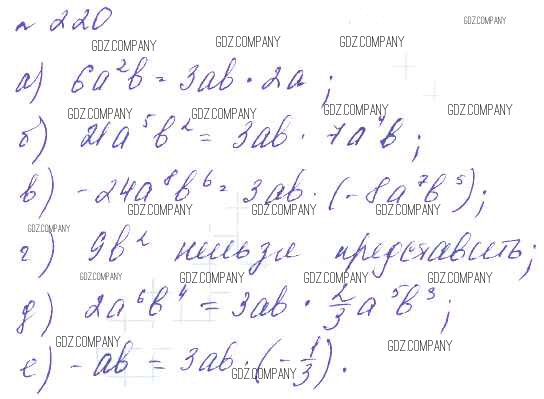 № 220
GDZ.COMPANY
GDZ.COMPANY GDZ.COMPANY GDZ.COMPANY
а) 6a²b = 3ab · 2a;
GDZ.COMPANY GDZ.COMPANY GDZ.COMPANY GDZ.COMPANY
б) 21a⁵b² = 3ab · 7a⁴b;
в) -24a⁸b⁶ = 3ab · (-8a⁷b⁵);
GDZ.COMPANY GDZ.COMPANY GDZ.COMPANY
GDZ.COMPANY
г) 9b² нельзя представить;
GDZ.COMPANY GDZ.COMPANY GDZ.COMPANY GDZ.COMPANY
д) 2a⁶b⁴ = 3ab · 2/3 a⁵b³;
GDZ.COMPANY GDZ.COMPANY
е) -ab = 3ab · (-1/3).
GDZ.COMPANY